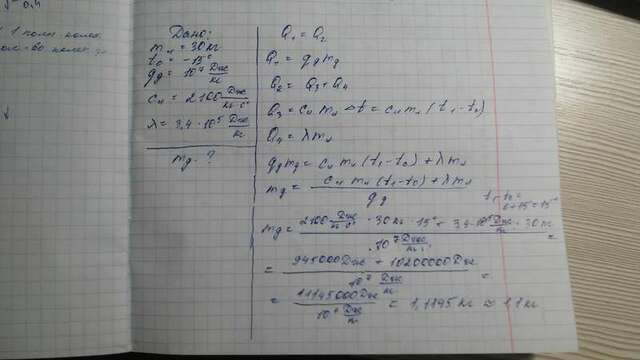 Дано:
mл = 30 кг
t0 = -15°
qд = 10⁷ Дж/кг
cл = 2100 Дж/кг·c°
λ = 3,4 · 10⁵ Дж/кг
mд. ?
Q1 = Q2
Q1 = qд mд
Q2 = Q3 + Q4
Q3 = cл mл Δt = cл mл (t1 - t0)
Q4 = λ mл
qд mд = cл mл (t1 - t0) + λ mл
mд = cл mл (t1 - t0) + λ mл / qд
t1 - t0 =
0 + 15 = 15°
mд = 2100 Дж/кг·c° · 30 кг · 15° + 3,4 · 10⁵ Дж/кг · 30 кг / 10⁷ Дж/кг =
= 945000 Дж + 10200000 Дж / 10⁷ Дж/кг =
= 11145000 Дж / 10⁷ Дж/кг = 1,1145 кг ≈ 1,1 кг